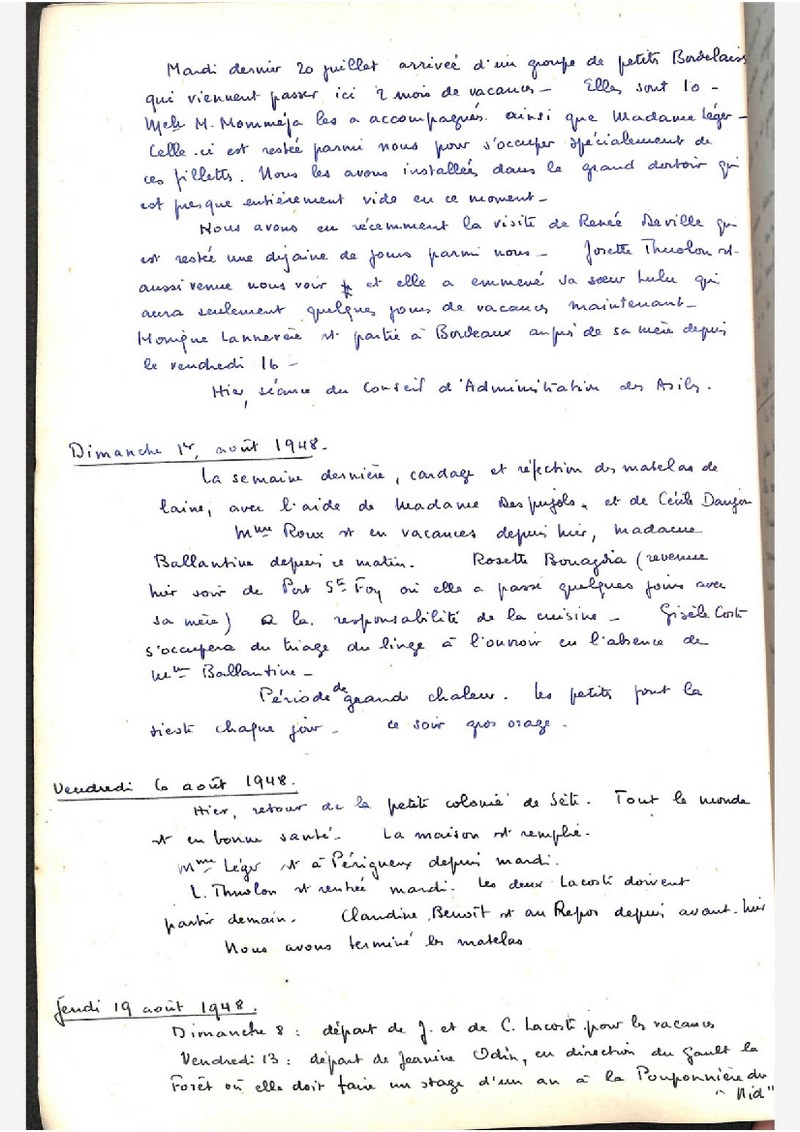 Mardi dernier 20 juillet arrivée d'un groupe de petits Bordelais
qui viennent passer ici 2 mois de vacances – Elles sont 10 –
M. Momméja les a accompagnés. ainsi que Madame Léger –
Celle-ci est restée parmi nous pour s'occuper spécialement de
ces fillettes. Nous les avons installées dans le grand dortoir qui
est presque entièrement vide en ce moment –
Nous avons eu récemment la visite de Renée Deville qui
est restée une dizaine de jours parmi nous – Josette Thuolon est
aussi venue nous voir et elle a emmené sa sœur Lulu qui
aura seulement quelques jours de vacances maintenant –
Monique Lannevère est partie à Bordeaux auprès de sa mère depuis
le vendredi 16 –
Hier, séance du Conseil d'Administration des Asiles.
Dimanche 1er, août 1948.
La semaine dernière, cardage et réfection des matelas de
laine, avec l'aide de Madame Despujols, et de Cécile Daujon
Mme Roux est en vacances depuis hier, Madame
Ballantine depuis ce matin. Rosette (revenue
hier soir de Port Ste Foy où elle a passé quelques jours avec
sa mère) a la responsabilité de la cuisine – Gisèle Coste
s'occupera du triage du linge à l'ouvroir en l'absence de
Mme Ballantine –
Période de grande chaleur. Les petits font la
sieste chaque jour – ce soir gros orage.
Vendredi 6 août 1948.
Hier, retour de la petite colonie de Sète. Tout le monde
est en bonne santé – La maison est remplie.
Mme Léger est à Périgueux depuis mardi.
L. Thuolon est rentrée mardi. Les deux Lacoste doivent
partir demain. Claudine Benoît est au Repos depuis avant-hier
Nous avons terminé les matelas
Jeudi 19 août 1948.
Dimanche 8 : départ de J. et de C. Lacoste pour les vacances
Vendredi 13 : départ de Jeanine Odin, en direction du Gault la
Forêt où elle doit faire un stage d'un an à la Pouponnière du
"Nid"